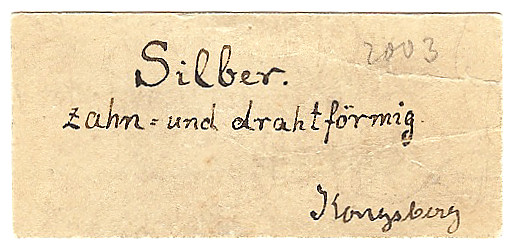 2003
Silber.
zahn- und drahtförmig.
Kongsberg